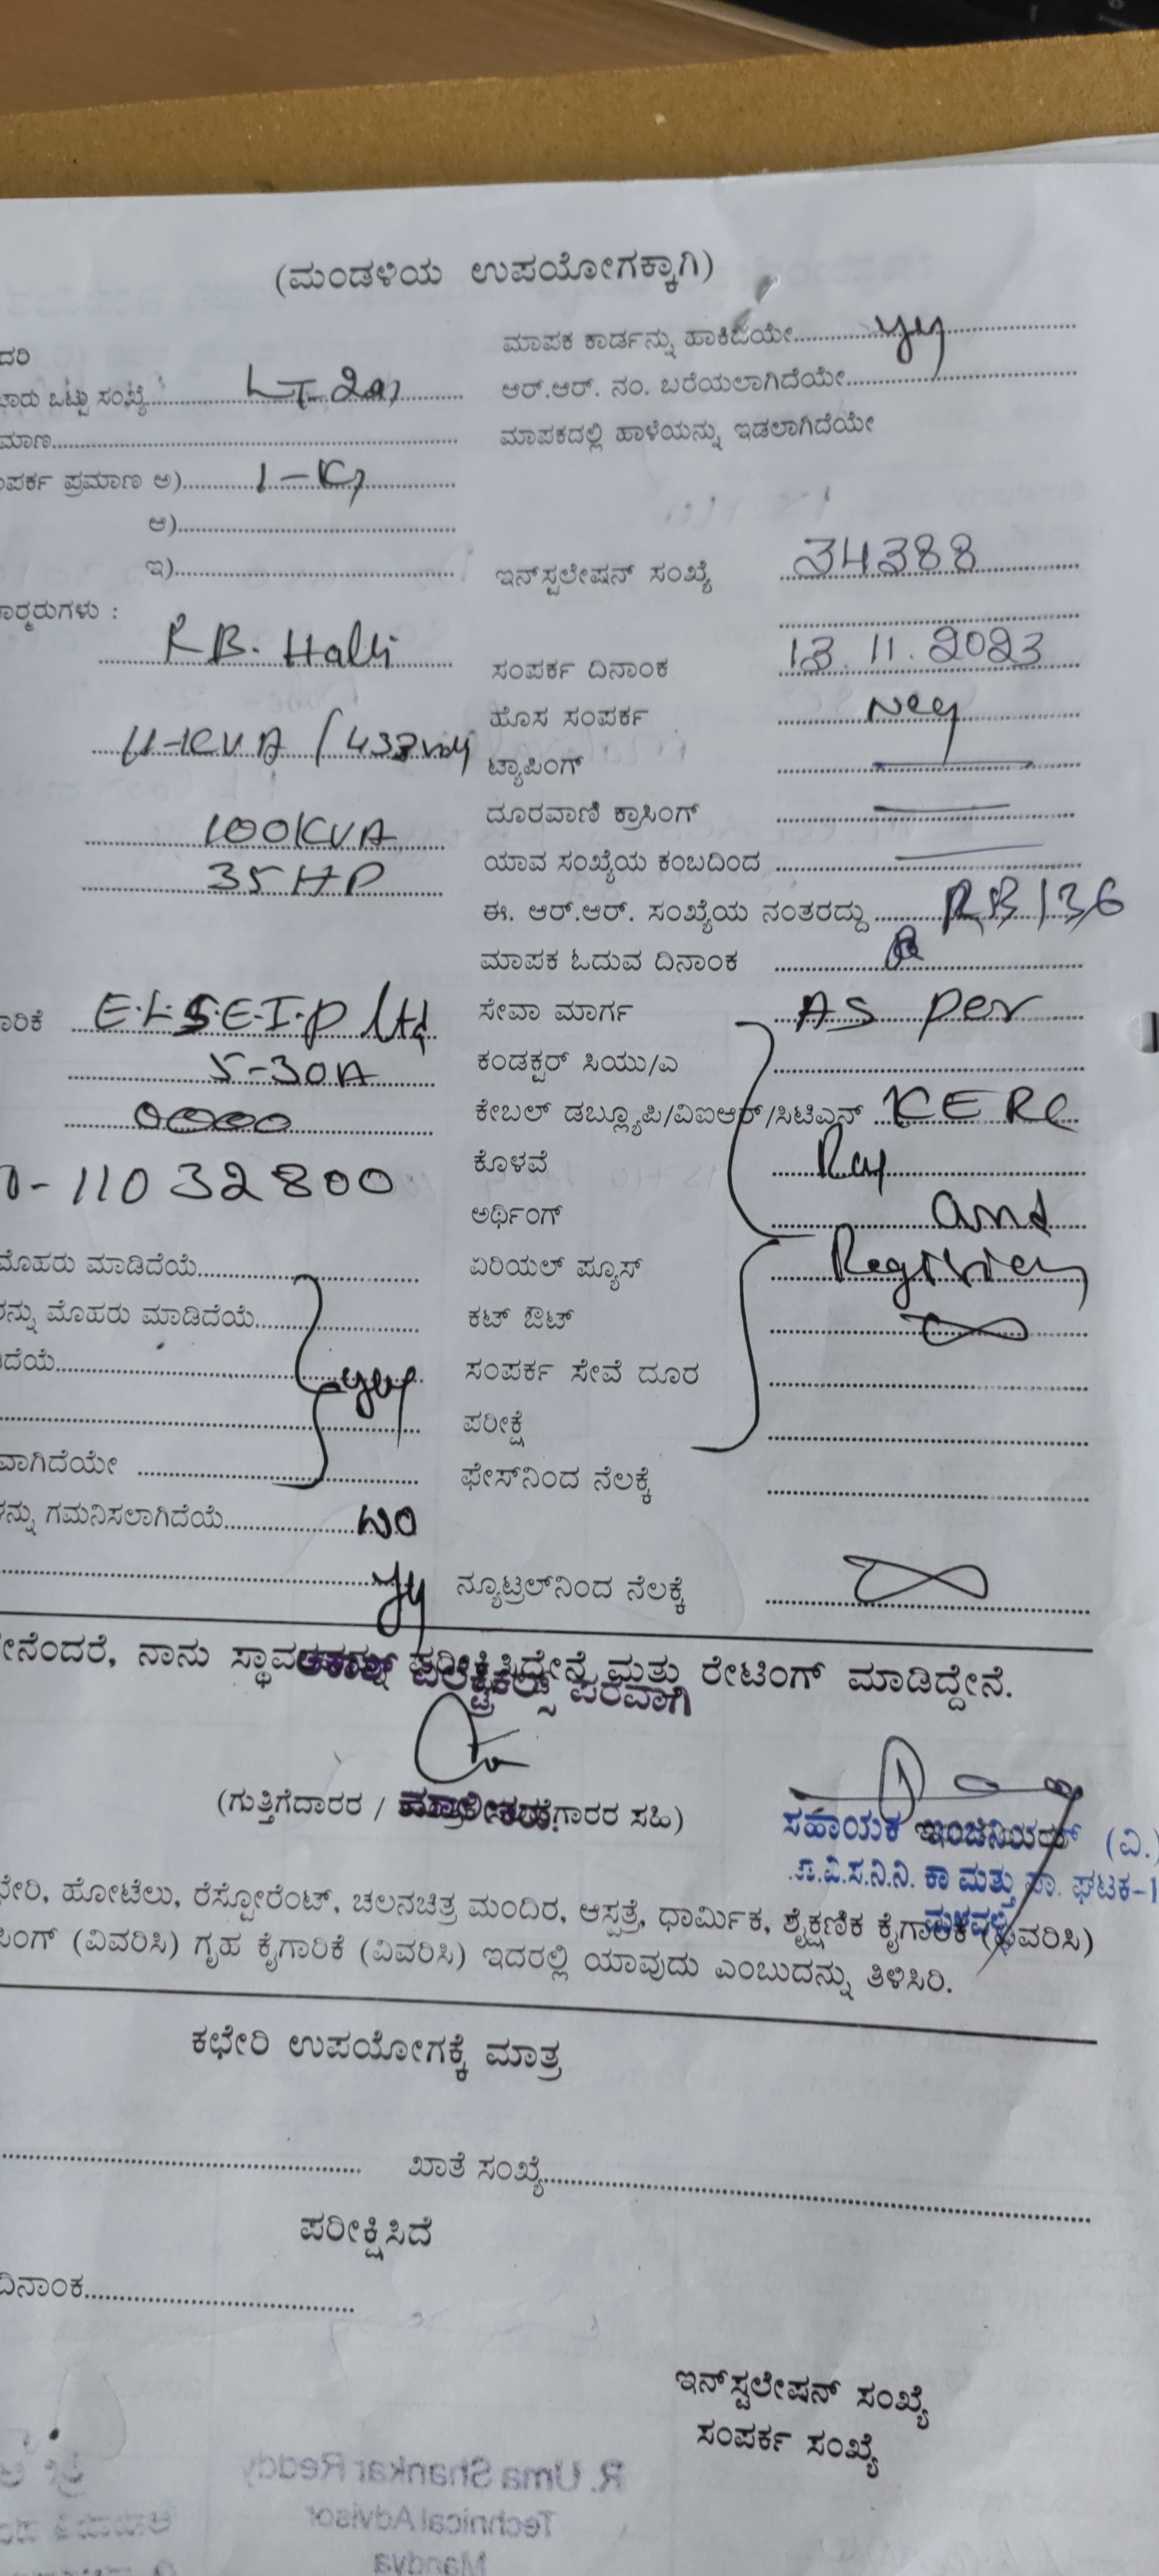 (ಮಂಡಳಿಯ ಉಪಯೋಗಕ್ಕಾಗಿ)
ಮಾಪಕ ಕಾರ್ಡನ್ನು ಹಾಕಿದೆಯೇ
ದರಿ
ಆರ್.ಆರ್. ನಂ. ಬರೆಯಲಾಗಿದೆಯೇ
ಒಟ್ಟು ಸಂಖ್ಯೆ LT-2a
ಮಾಪಕದಲ್ಲಿ ಹಾಳೆಯನ್ನು ಇಡಲಾಗಿದೆಯೇ
ಮಾಣ
ಪರ್ಕ ಪ್ರಮಾಣ ಅ)
ಆ)
ಇ)
ಇನ್‌ಸ್ಟಲೇಷನ್ ಸಂಖ್ಯೆ 34388
ಾರ್‍ಮರುಗಳು :
R.B. Halli
ಸಂಪರ್ಕ ದಿನಾಂಕ 13.11.2023
ಹೊಸ ಸಂಪರ್ಕ
11-KVA / 433
ಟ್ಯಾಪಿಂಗ್
ದೂರವಾಣಿ ಕ್ರಾಸಿಂಗ್
100KVA
ಯಾವ ಸಂಖ್ಯೆಯ ಕಂಬದಿಂದ
35HP
ಈ. ಆರ್.ಆರ್. ಸಂಖ್ಯೆಯ ನಂತರದ್ದು RB136
ಮಾಪಕ ಓದುವ ದಿನಾಂಕ
ಾರಿಕೆ
ಸೇವಾ ಮಾರ್ಗ As per
5-30A
ಕಂಡಕ್ಟರ್ ಸಿಯು/ಎ
0000
ಕೇಬಲ್ ಡಬ್ಲ್ಯೂಪಿ/ವಿಐಆರ್/ಸಿಟಿಎನ್ KERC
11032800
ಕೊಳವೆ
ಅರ್ಥಿಂಗ್ and
ಮೊಹರು ಮಾಡಿದೆಯೆ
ಏರಿಯಲ್ ಪ್ಯೂಸ್
ರನ್ನು ಮೊಹರು ಮಾಡಿದೆಯೆ
ಕಟ್ ಔಟ್
ದೆಯೆ
ಸಂಪರ್ಕ ಸೇವೆ ದೂರ
ಪರೀಕ್ಷೆ
ವಾಗಿದೆಯೇ
ಫೇಸ್‌ನಿಂದ ನೆಲಕ್ಕೆ
ಗಮನಿಸಲಾಗಿದೆಯೆ NO
ನ್ಯೂಟ್ರಲ್‌ನಿಂದ ನೆಲಕ್ಕೆ
ನೆಂದರೆ, ನಾನು ಪರೀಕ್ಷಿಸಿದ್ದೇನೆ ಮತ್ತು ರೇಟಿಂಗ್ ಮಾಡಿದ್ದೇನೆ.
ಪರವಾಗಿ
(ಗುತ್ತಿಗೆದಾರರ / ಗಾರರ ಸಹಿ)
ಸಹಾಯಕ ಇಂಜಿನಿಯರ್ (ವಿ.)
ಕಾ ಮತ್ತು ಪಾ. ಘಟಕ-1
ಮಳವಳ್ಳಿ
ಛೇರಿ, ಹೋಟೆಲು, ರೆಸ್ಟೋರೆಂಟ್, ಚಲನಚಿತ್ರ ಮಂದಿರ, ಆಸ್ಪತ್ರೆ, ಧಾರ್ಮಿಕ, ಶೈಕ್ಷಣಿಕ ಕೈಗಾರಿಕೆ (ವಿವರಿಸಿ)
ಸಿಂಗ್ (ವಿವರಿಸಿ) ಗೃಹ ಕೈಗಾರಿಕೆ (ವಿವರಿಸಿ) ಇದರಲ್ಲಿ ಯಾವುದು ಎಂಬುದನ್ನು ತಿಳಿಸಿರಿ.
ಕಛೇರಿ ಉಪಯೋಗಕ್ಕೆ ಮಾತ್ರ
ಖಾತೆ ಸಂಖ್ಯೆ
ಪರೀಕ್ಷಿಸಿದೆ
ದಿನಾಂಕ
ಇನ್‌ಸ್ಟಲೇಷನ್ ಸಂಖ್ಯೆ
ಸಂಪರ್ಕ ಸಂಖ್ಯೆ
R. Uma Shankar Reddy
Technical Advisor
Mandya